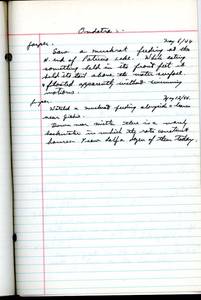 Ondatra :-
Jasper. May 6/44
Saw a muskrat feeding at the
N. end of Patricia Lake. While eating
something held in its front feet it
held its tail above the water surface
& floated apparently without swimming
motions.
Jasper. May 12/44.
Watched a muskrat feeding alongside a
near
Down near is a marshy
backwater in which the rats construct
houses. Know half a dozen of them today.